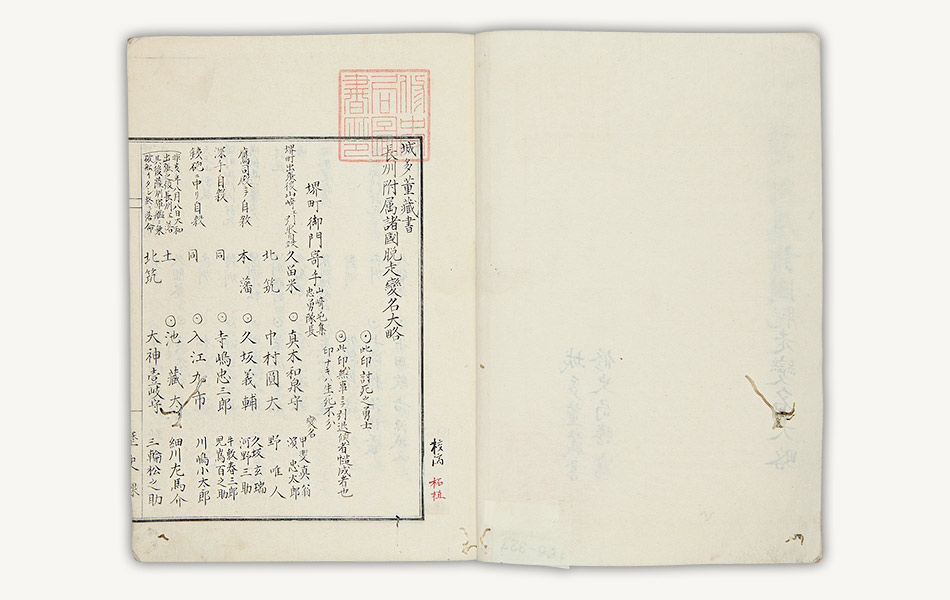 修史局圖書印
校済
柘植
城多董藏書
長州附属諸國脱走變名大略
⊙此印討死之勇士
◎此印然事ニ引退候者
印ナキハ生死不分
堺町御門寄手
山崎屯集
忠勇隊長
變名
堺町出張後山崎ニ引取自殺
久留米
○真木和泉守
甲斐真翁
濱忠太郎
北筑
中村圓太
野唯人
鷹司殿ニテ自殺
本藩
○久坂義輔
久坂玄瑞
河野三助
深手自殺
同
○寺嶋忠三郎
牛敷春三郎
児嶌百之助
銃砲ニ中リ自殺
同
○入江九市
川嶋小太郎
土
○池藏太
細川左馬介
北筑
大神壹岐守
三輪松之助
歴史課